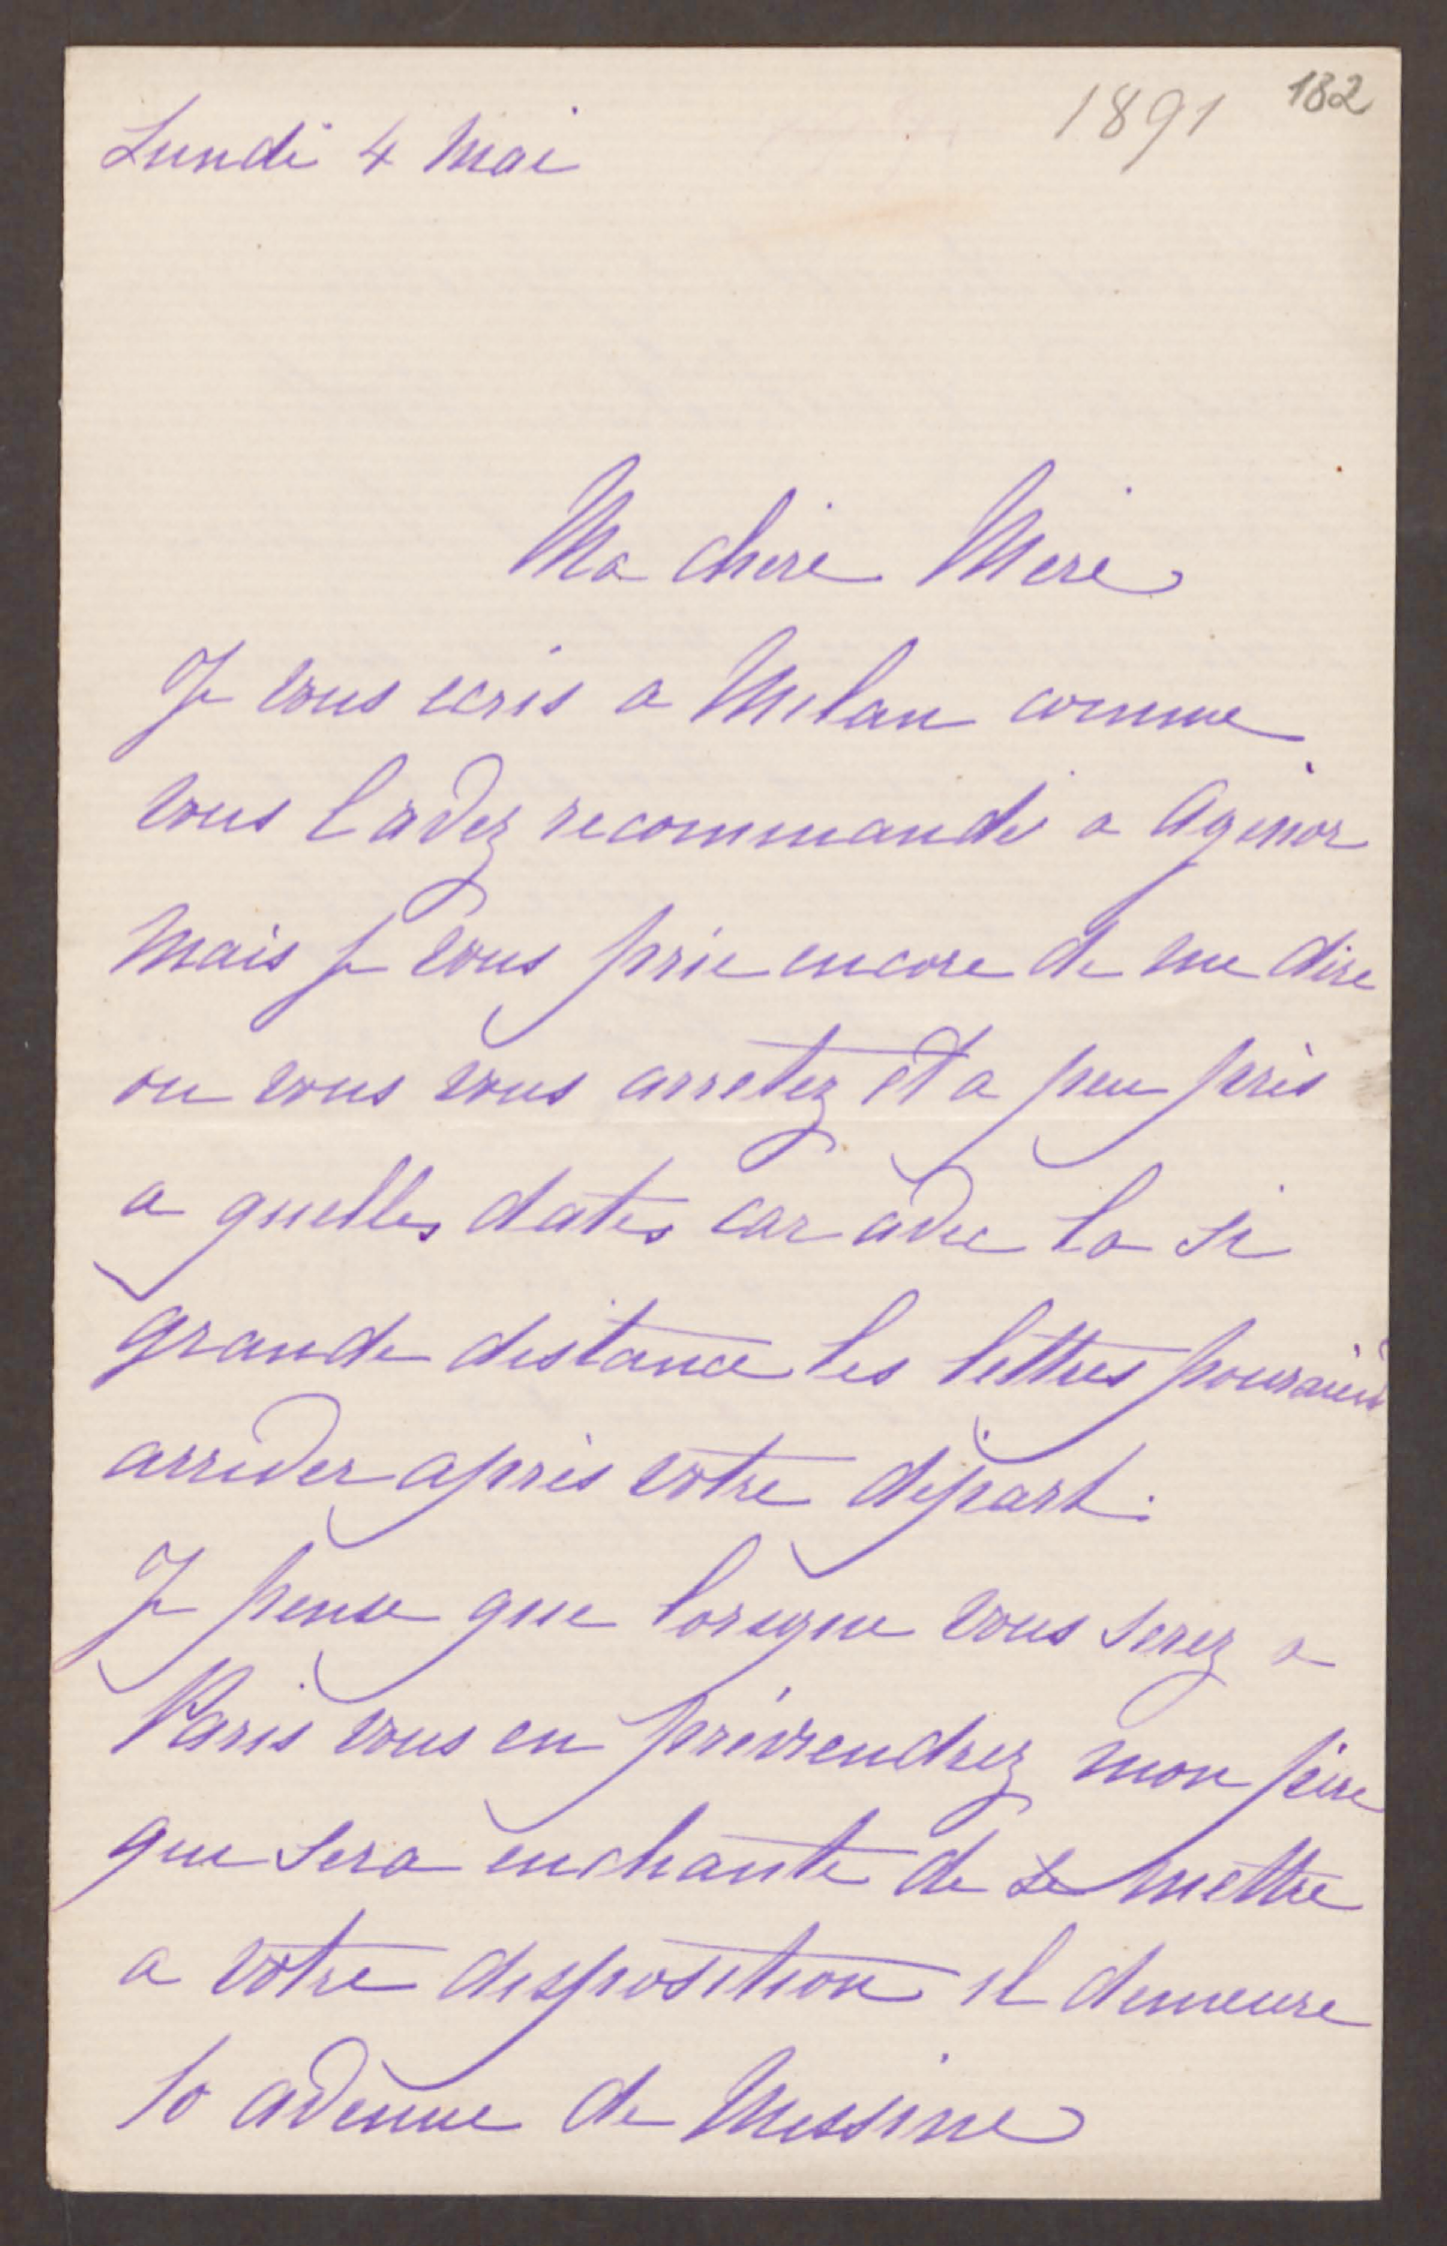 1891 182
Lundi 4 Mai
Ma chere Mere
Je vous ecris a Milan comme
vous l avez recommandé a Agenor
Mais je vous prie encore de me dire
ou vous vous arretez et a peu près
a quelles dates car avec la si
grande distance les lettres pouraient
arriver après votre départ.
Je pense que lorsque vous serez a
Paris vous en préviendrez mon père
qui sera enchante de se mettre
a votre disposition il demeure
10 avenue de Messine